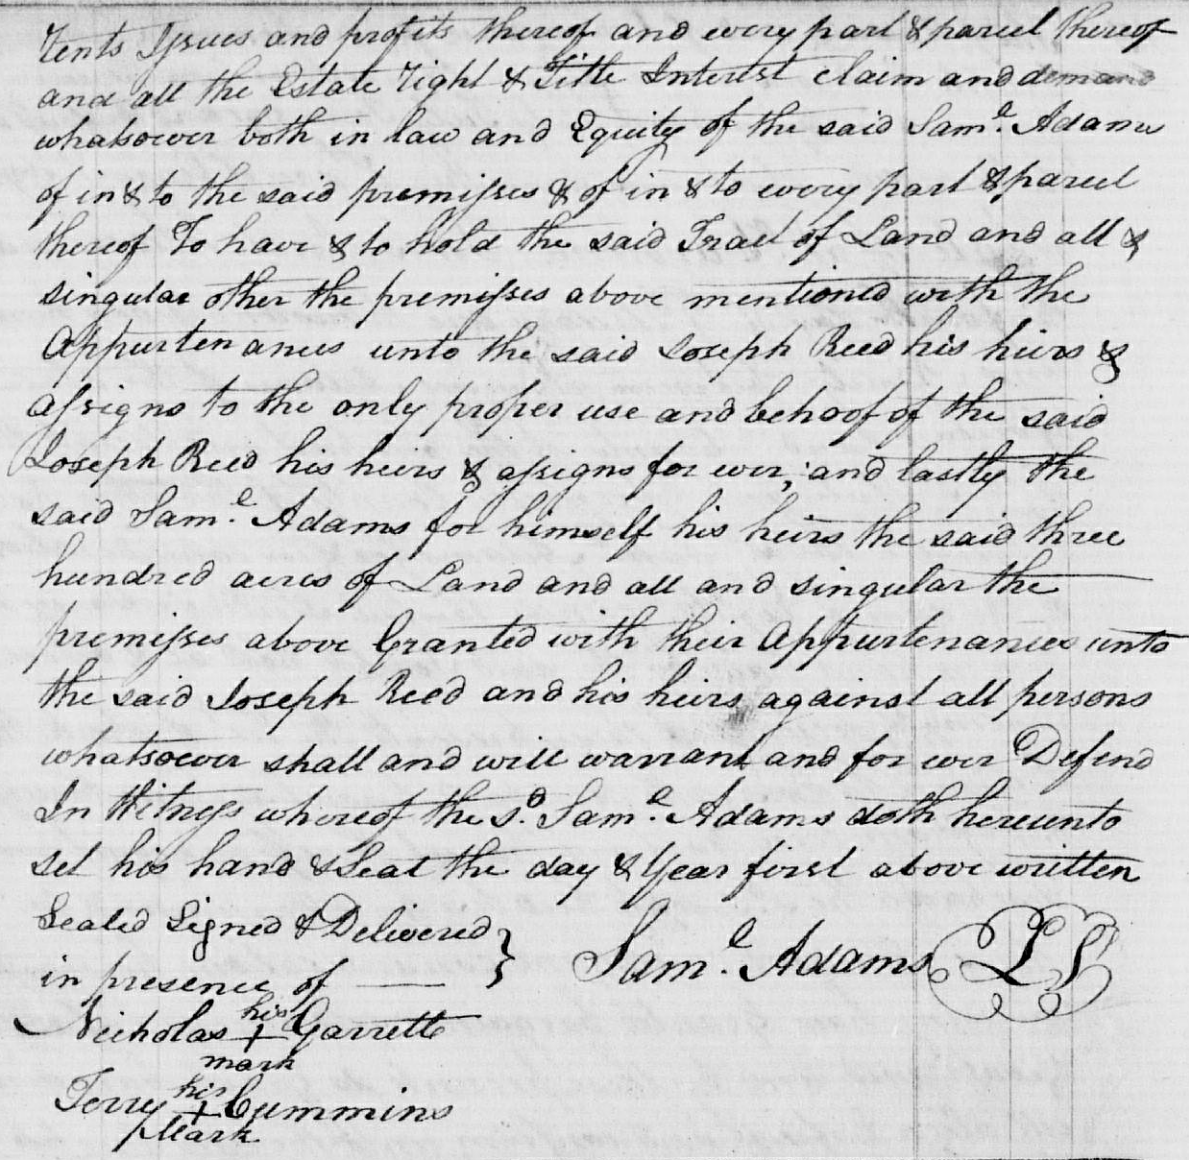 rents Issues and profits thereof and every part & parcel thereof
and all the Estate right & Title Interest claim and demand
whatsoever both in law and Equity of the said Sam.l Adams
of in & to the said premisses & of in & to every part & parcel
thereof To have & to hold the said Tract of Land and all &
singular other the premisses above mentioned with the
Appurtenances unto the said Joseph Reed his heirs &
assigns to the only proper use and behoof of the said
Joseph Reed his heirs & assigns for ever; and lastly the
said Sam.l Adams for himself his heirs the said three
hundred acres of Land and all and singular the
premisses above Granted with their Appurtenances unto
the said Joseph Reed and his heirs against all persons
whatsoever shall and will warrant and for ever Defend
In Witness whereof the s.d Sam.l Adams doth hereunto
set his hand & Seal the day & Year first above written
Sealed Signed & Delivered }
in presence of —— } Sam.l Adams LS
his
Nicholas + Garrett
mark
his
Terry + Cummins
Mark